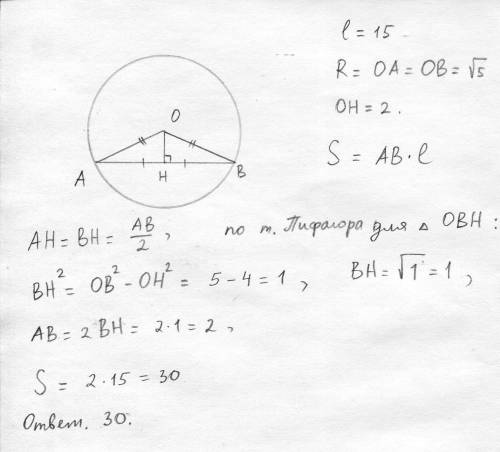 l = 15
R = OA = OB = √5
OH = 2.
S = AB·l
O
A
H
B
AH = BH = AB/2, по т. Пифагора для △ OBH:
BH² = OB² - OH² = 5 - 4 = 1, BH = √1 = 1,
AB = 2BH = 2·1 = 2,
S = 2·15 = 30
Ответ. 30.